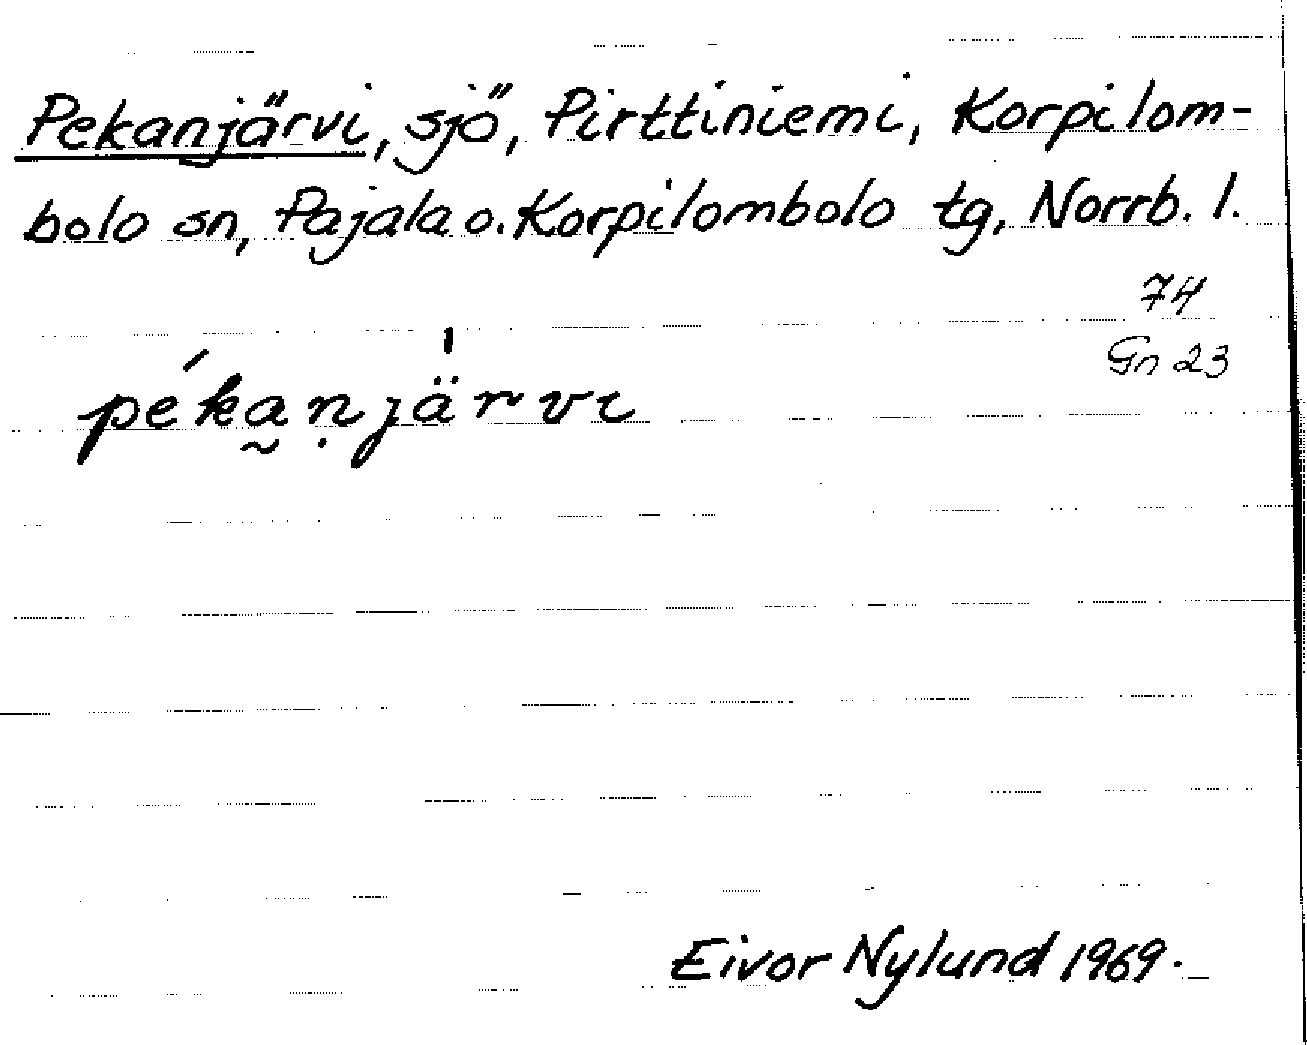 Pekanjärvi, sjö, Pirttiniemi, Korpilom-
bolo sn, Pajala o. Korpilombolo tg, Norrb. l.
74
Gn 23
péka̰ṇjä̍rvi
Eivor Nylund 1969.